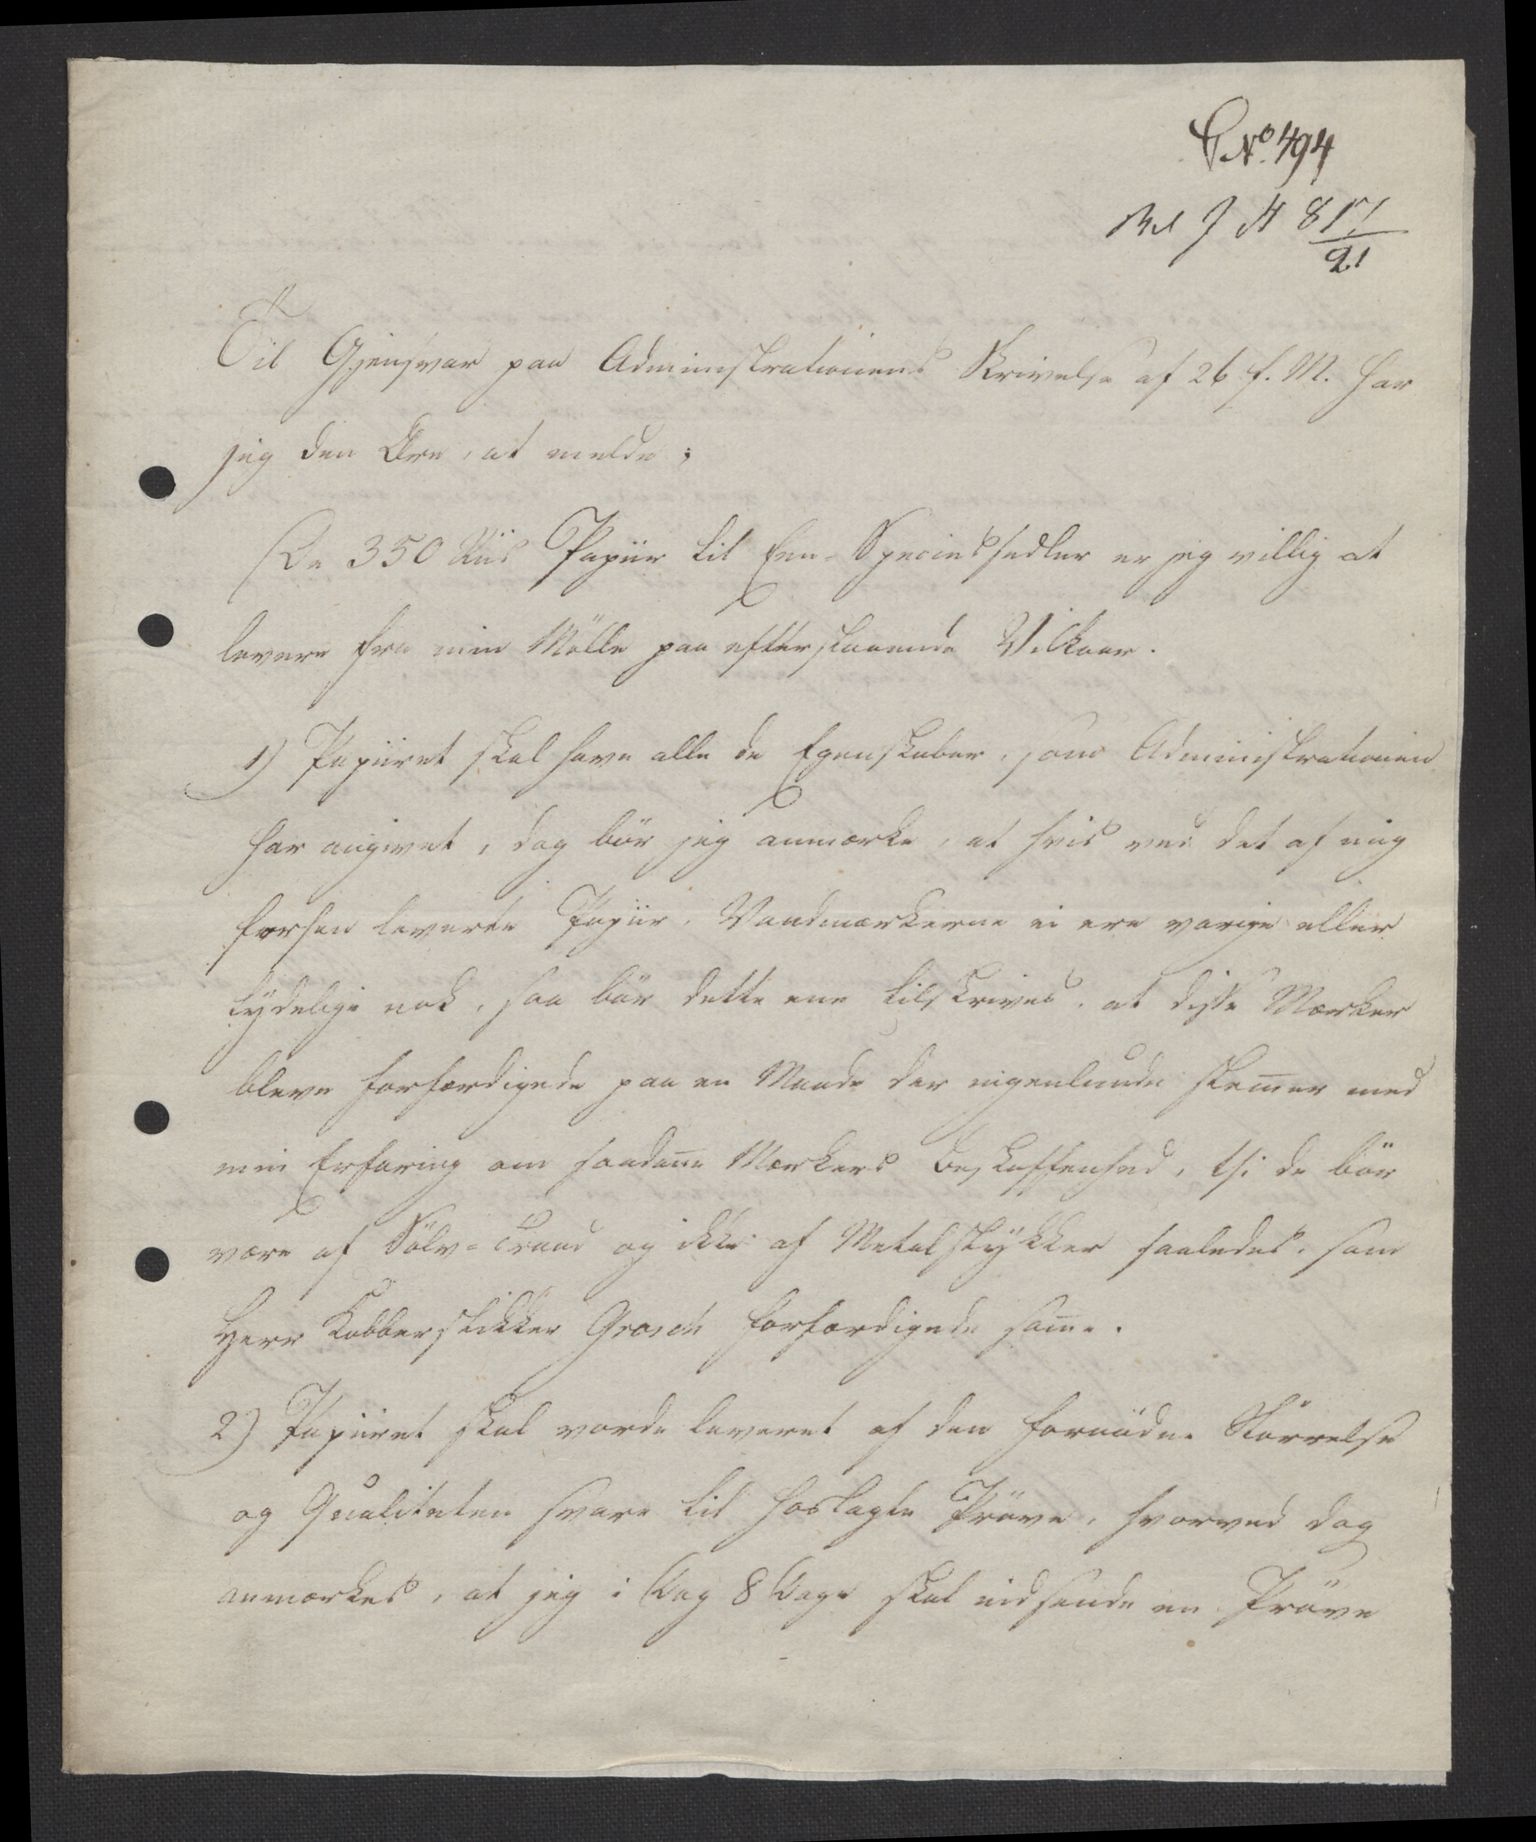 C No. 494
J A 817/21
Til Gjensvar paa Administrationens Skrivelse af 26 f. M. har
jeg den Ære, at melde;
De 350 Riis Papiir til Een-Speciessedler er jeg villig at
levere fra min Mölle paa efterstaaende Vilkaar.
1) Papiiret skal have alle de Egenskaber, som Administrationen
har angivet, dog bör jeg anmærke, at hvis ved det af mig
forhen leverte Papiir, Vandmærkerne ei ere varige eller
tydelige nok, saa bör dette ene tilskrives, at disse Mærker
bleve forfærdigede paa en Maade der ingenlunde stemer med
min Erfaring om saadane Mærkers Beskaffenhed, thi de bör
være af Sölv-Traad og ikke af Metalstykker saaledes, som
Herr Kobberstikker Grosch forfærdigede same.
2) Papiiret skal vorde leveret af den fornödne Störrelse
og Qualiteten svare til hoslagte Pröve, hvorved dog
anmærkes, at jeg i Dag 8 Dage skal indsende en Pröve